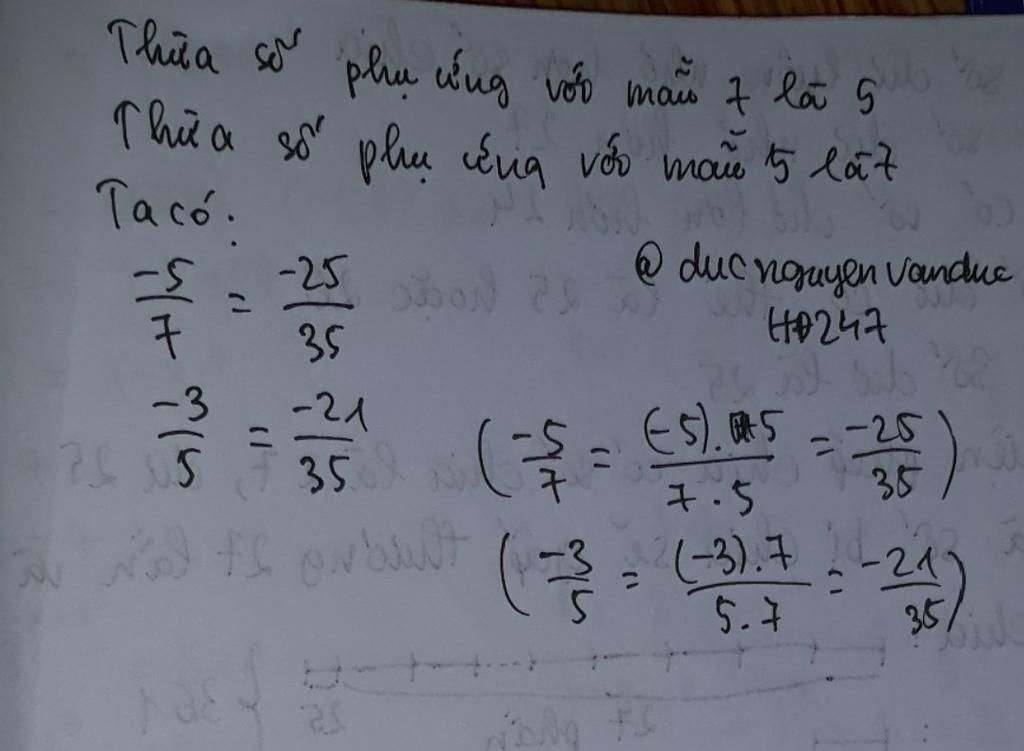 Thừa số phụ ứng với mẫu 7 là 5
Thừa số phụ ứng với mẫu 5 là 7
Ta có:
-5/7 = -25/35
@ducnguyenvanduc
HĐ247
-3/5 = -21/35
(-5/7 = (-5).5/7.5 = -25/35)
(-3/5 = (-3).7/5.7 = -21/35)
25
27 phần
361